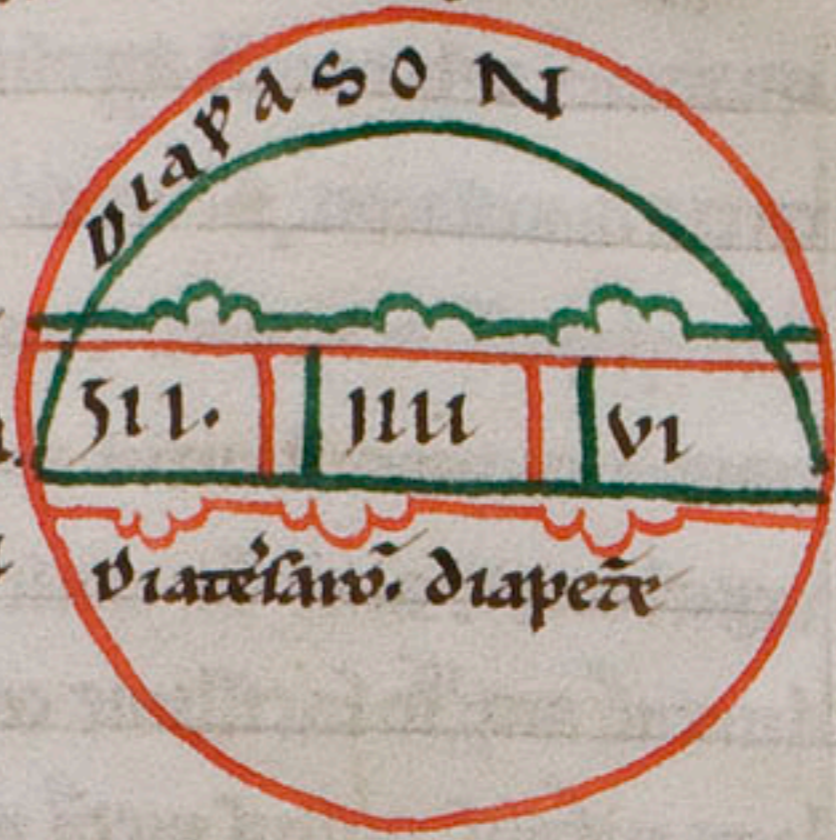 DIAPASON
III. IIII VI
Diatesarō. diapēte